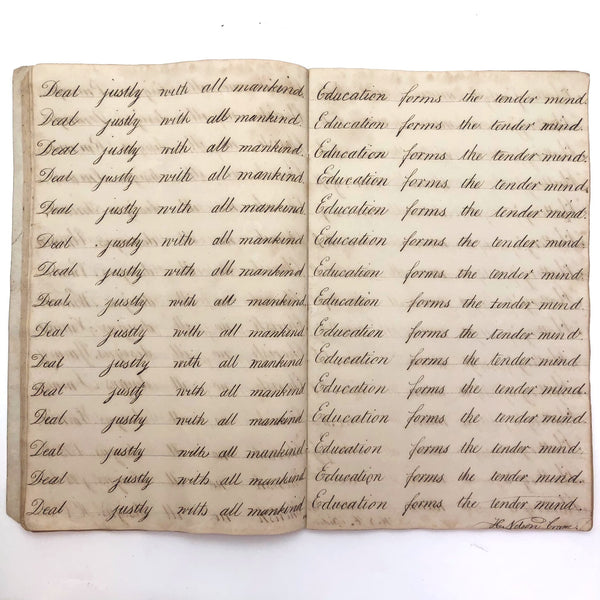 Deal justly with all mankind.
Deal justly with all mankind
Deal justly with all mankind.
Deal justly with all mankind.
Deal justly with all mankind.
Deal justly with all mankind.
Deal justly with all mankind.
Deal justly with all mankind.
Deal justly with all mankind.
Deal justly with all mankind.
Deal justly with all mankind.
Deal justly with all mankind.
Deal justly with all mankind.
Deal justly with all mankind.
Deal justly with all mankind.
Education forms the tender mind.
Education forms the tender mind.
Education forms the tender mind.
Education forms the tender mind.
Education forms the tender mind.
Education forms the tender mind.
Education forms the tender mind.
Education forms the tender mind.
Education forms the tender mind.
Education forms the tender mind.
Education forms the tender mind.
Education forms the tender mind.
Education forms the tender mind.
Education forms the tender mind.
Education forms the tender mind.
H. Nelson